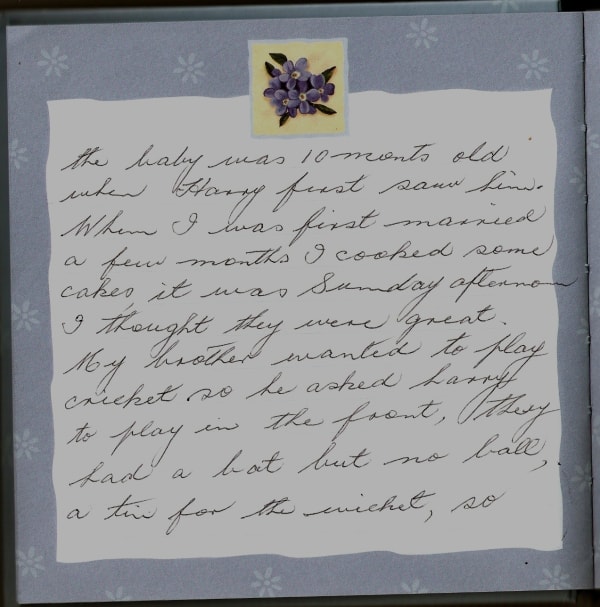 the baby was 10 monts old
when Harry first saw him.
When I was first married
a few months I cooked some
cakes, it was Sunday afternoon
I thought they were great.
My brother wanted to play
cricket so he asked harry
to play in the front, they
had a bat but no ball,
a tin for the wicket, so